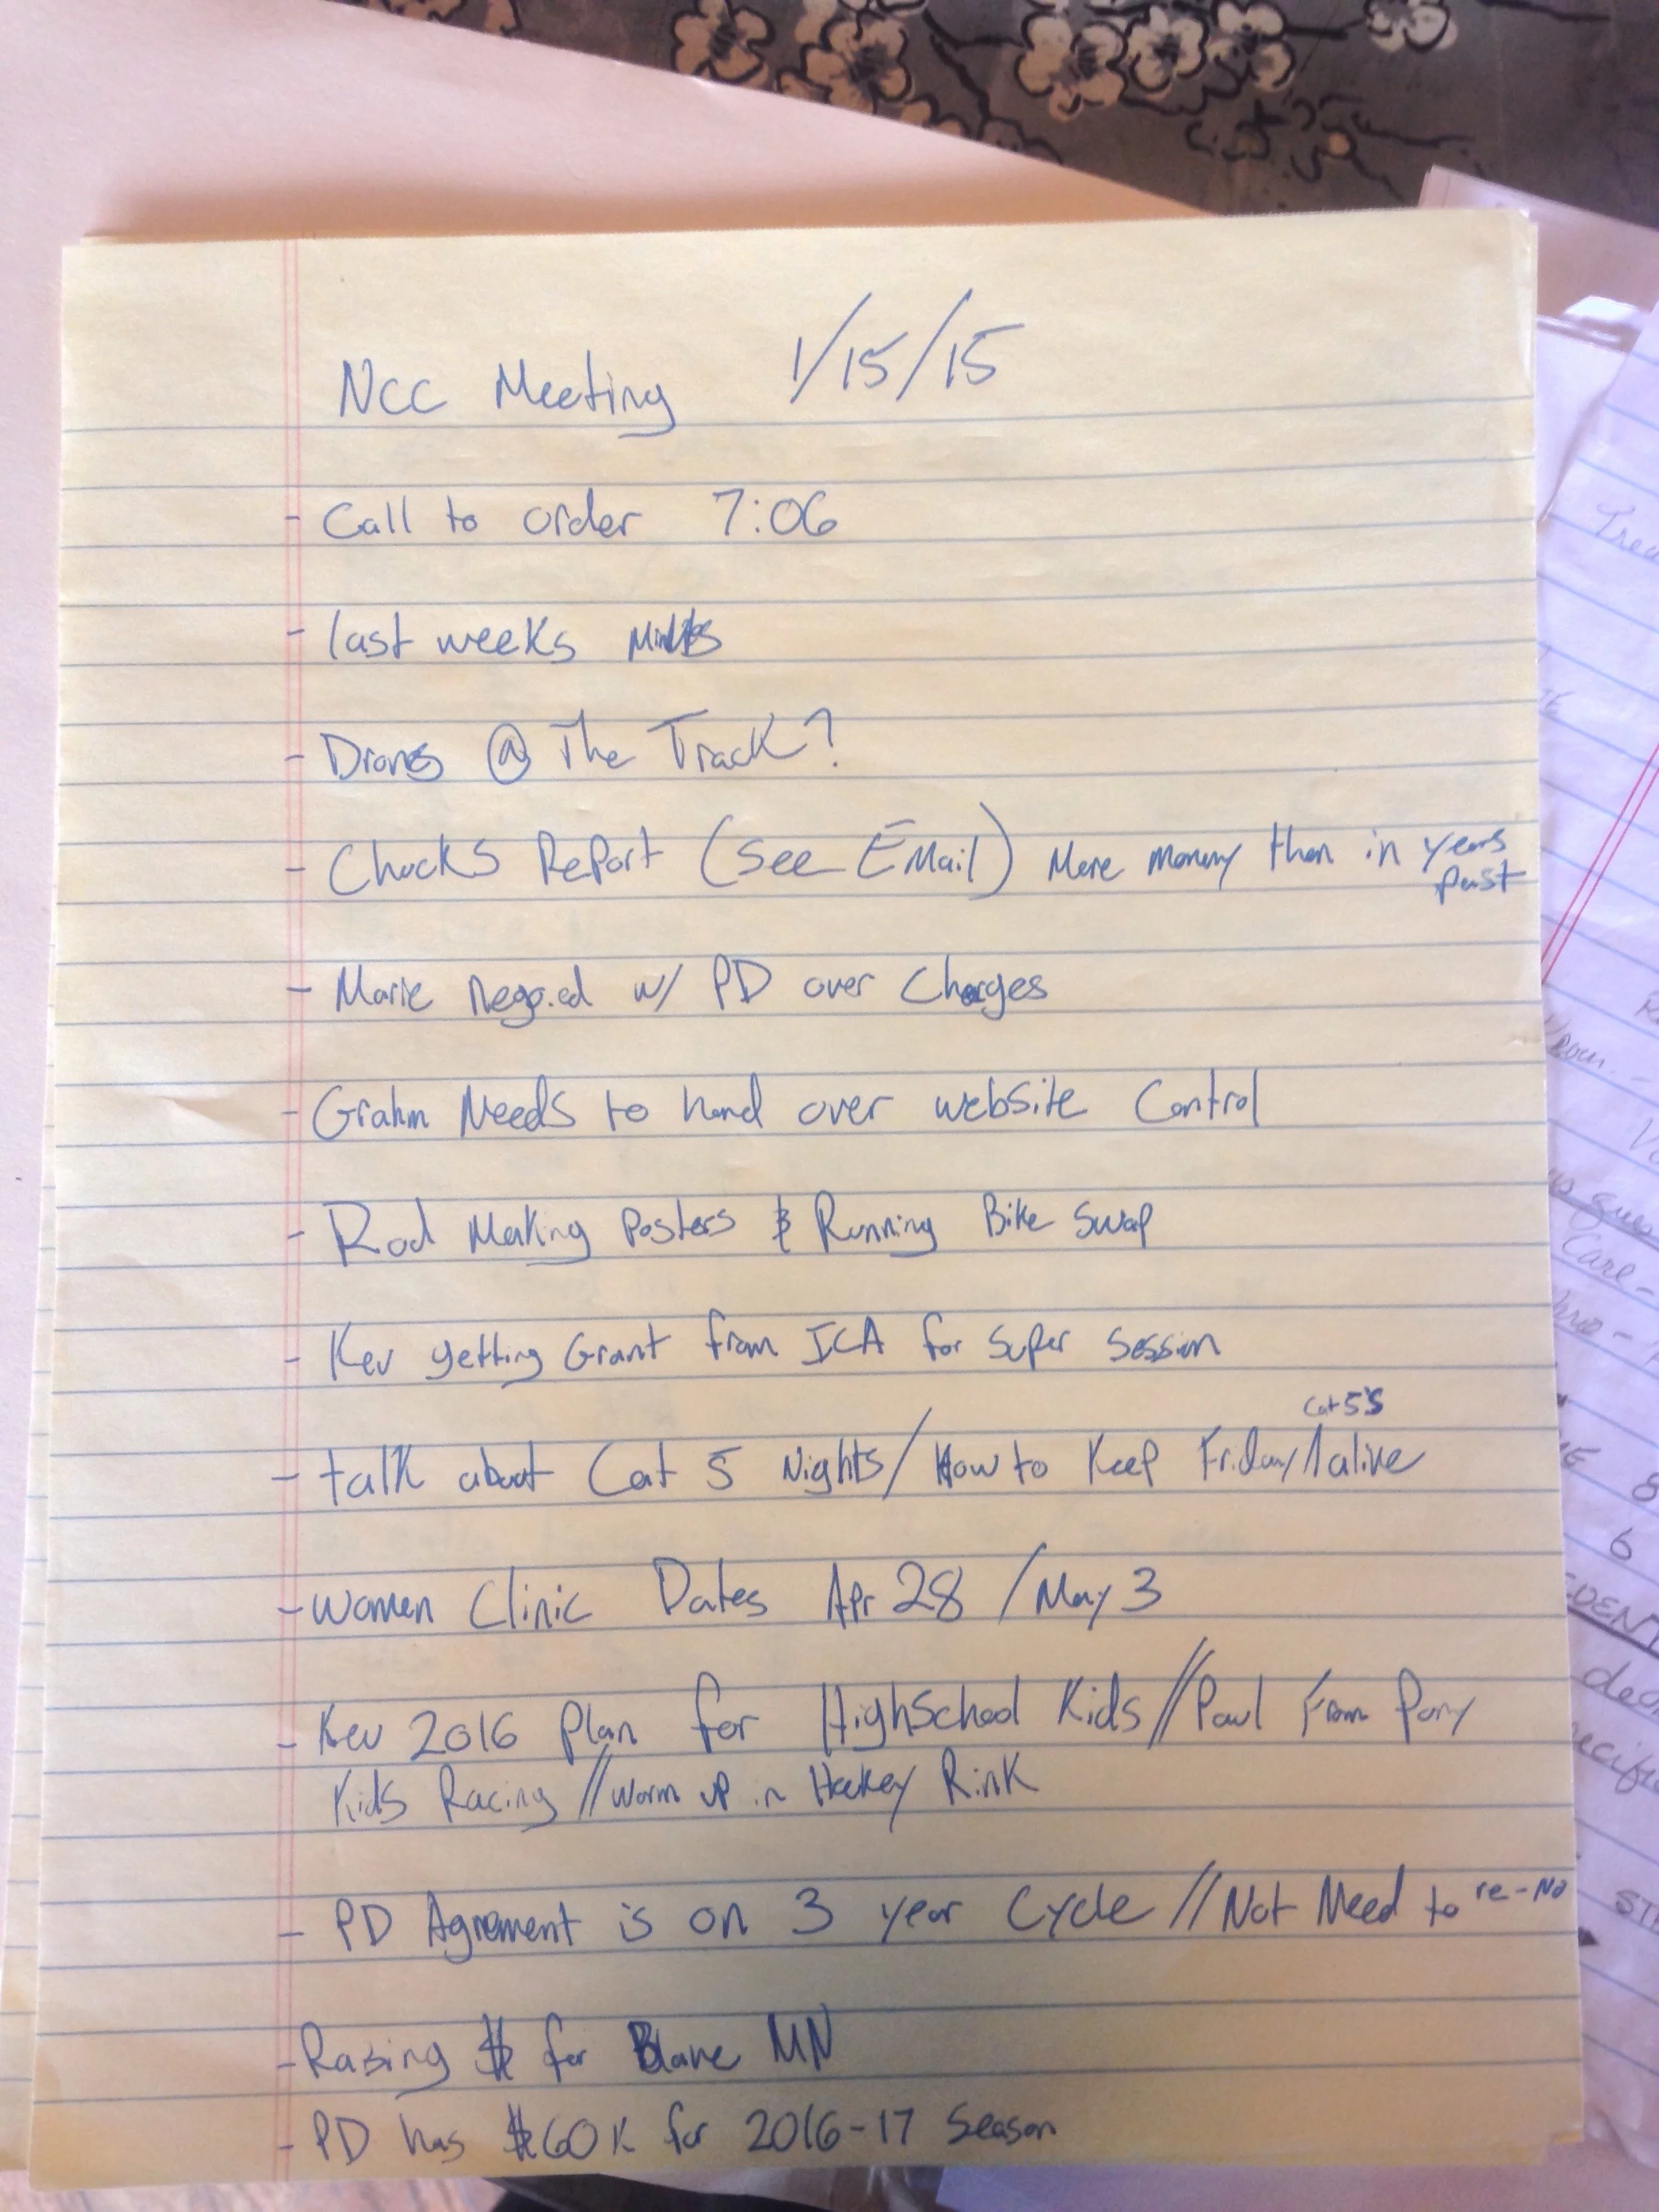 NCC Meeting 1/15/15
- Call to order 7:06
- last weeks Minutes
- Drones @ The Track?
- Chucks Report (see EMail) More money then in years
past
- Marie Nego.ed w/ PD over Charges
- Grahm Needs to hand over website Control
- Rod Making Posters & Running Bike Swap
- Kev getting Grant from ICA for Super Session
Cat 5's
- talk about Cat 5 Nights/How to Keep Friday/ alive
- women Clinic Dates Apr 28 / May 3
- Kev 2016 Plan for HighSchool Kids // Paul From Pony
Kids Racing // Warm up in Hockey Rink
- PD Agrement is on 3 year Cycle // Not Need to re-No
- Raising $ for Blane MN
- PD has $60K for 2016-17 Season
Care-
8
6